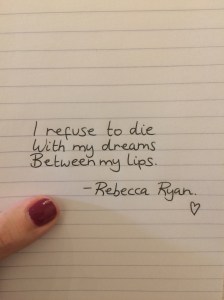 I refuse to die
With my dreams
Between my lips.
- Rebecca Ryan.